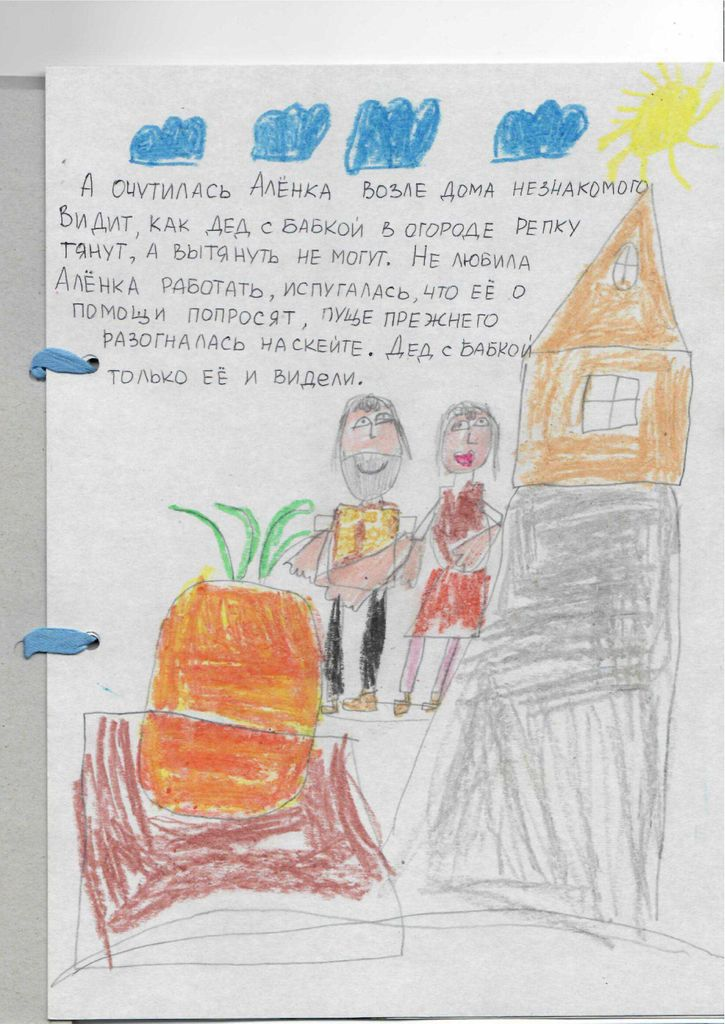 А ОЧУТИЛАСЬ АЛЁНКА ВОЗЛЕ ДОМА НЕЗНАКОМОГО
ВИДИТ, КАК ДЕД С БАБКОЙ В ОГОРОДЕ РЕПКУ
ТЯНУТ, А ВЫТЯНУТЬ НЕ МОГУТ. НЕ ЛЮБИЛА
АЛЁНКА РАБОТАТЬ, ИСПУГАЛАСЬ, ЧТО ЕЁ О
ПОМОЩИ ПОПРОСЯТ, ПУЩЕ ПРЕЖНЕГО
РАЗОГНАЛАСЬ НА СКЕЙТЕ. ДЕД С БАБКОЙ
ТОЛЬКО ЕЁ И ВИДЕЛИ.